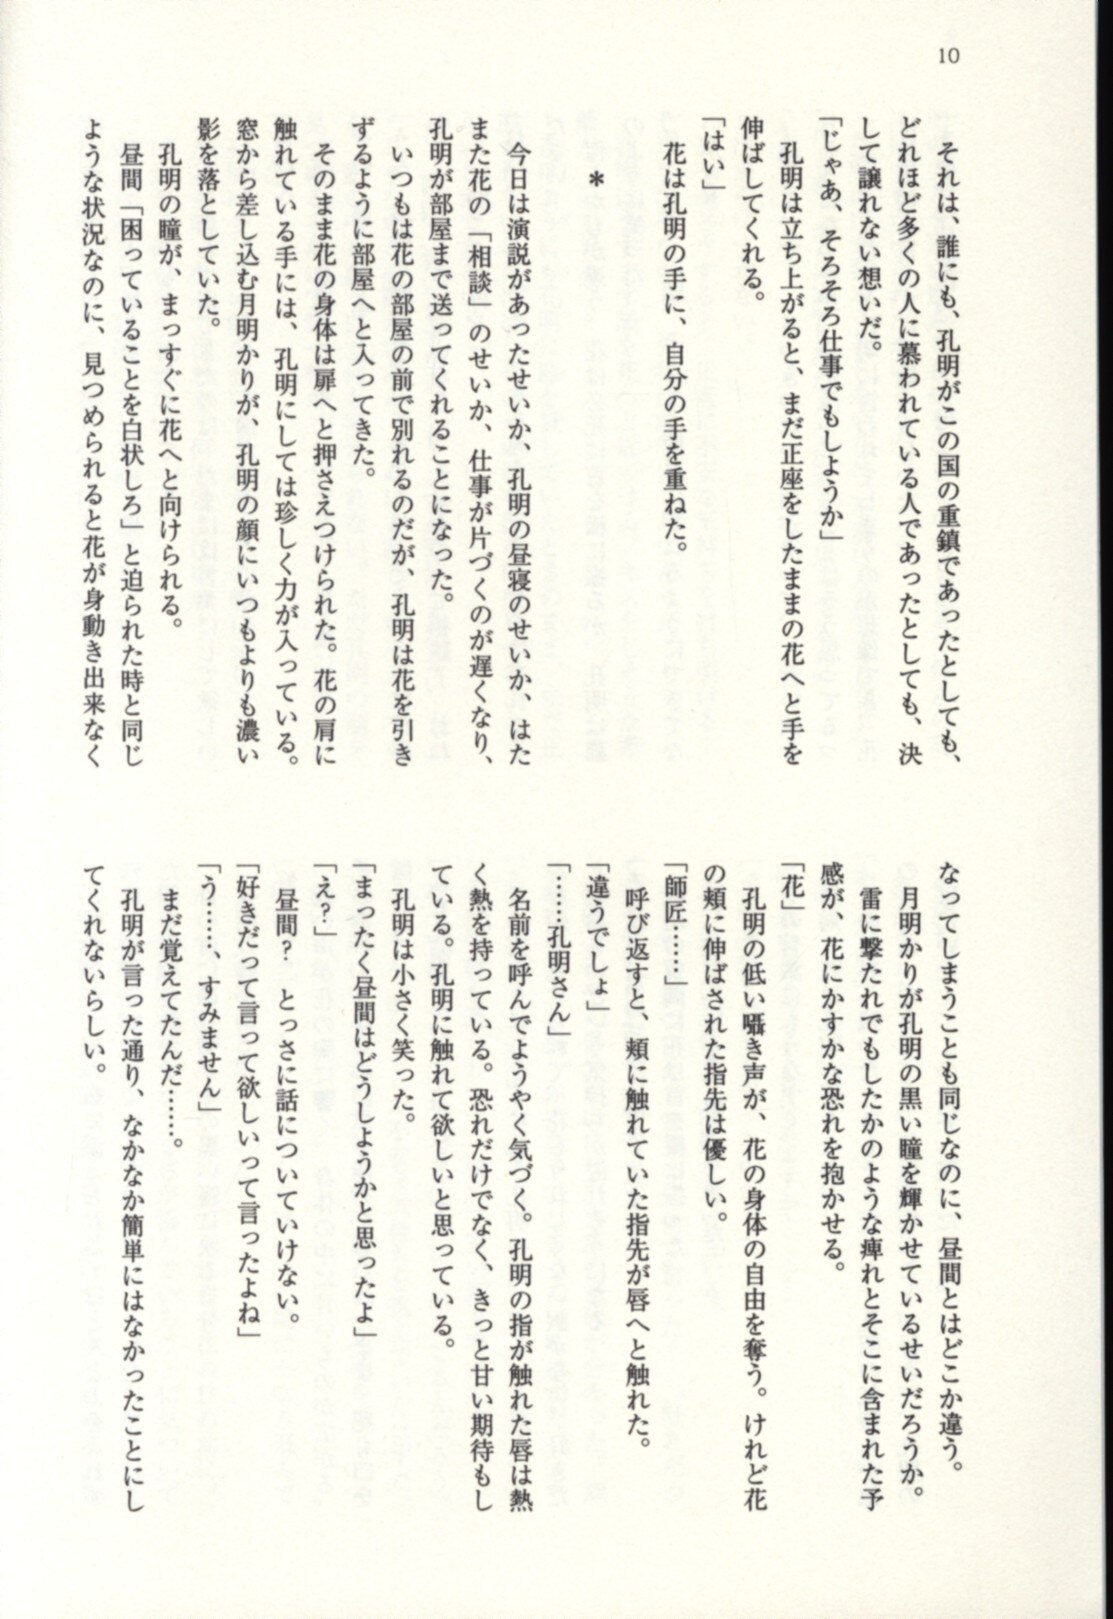 10
それは、誰にも、孔明がこの国の重鎮であったとしても、
どれほど多くの人に慕われている人であったとしても、決
して譲れない想いだ。
「じゃあ、そろそろ仕事でもしようか」
孔明は立ち上がると、まだ正座をしたままの花へと手を
伸ばしてくれる。
「はい」
花は孔明の手に、自分の手を重ねた。
＊
今日は演説があったせいか、孔明の昼寝のせいか、はた
また花の「相談」のせいか、仕事が片づくのが遅くなり、
孔明が部屋まで送ってくれることになった。
いつもは花の部屋の前で別れるのだが、孔明は花を引き
ずるように部屋へと入ってきた。
そのまま花の身体は扉へと押さえつけられた。花の肩に
触れている手には、孔明にしては珍しく力が入っている。
窓から差し込む月明かりが、孔明の顔にいつもよりも濃い
影を落としていた。
孔明の瞳が、まっすぐに花へと向けられる。
昼間「困っていることを白状しろ」と迫られた時と同じ
ような状況なのに、見つめられると花が身動き出来なく
なってしまうことも同じなのに、昼間とはどこか違う。
月明かりが孔明の黒い瞳を輝かせているせいだろうか。
雷に撃たれでもしたかのような痺れとそこに含まれた予
感が、花にかすかな恐れを抱かせる。
「花」
孔明の低い囁き声が、花の身体の自由を奪う。けれど花
の頬に伸ばされた指先は優しい。
「師匠……」
呼び返すと、頬に触れていた指先が唇へと触れた。
「違うでしょ」
「……孔明さん」
名前を呼んでようやく気づく。孔明の指が触れた唇は熱
く熱を持っている。恐れだけでなく、きっと甘い期待もし
ている。孔明に触れて欲しいと思っている。
孔明は小さく笑った。
「まったく昼間はどうしようかと思ったよ」
「え？」
昼間？　とっさに話についていけない。
「好きだって言って欲しいって言ったよね」
「う……、すみません」
まだ覚えてたんだ……。
孔明が言った通り、なかなか簡単にはなかったことにし
てくれないらしい。